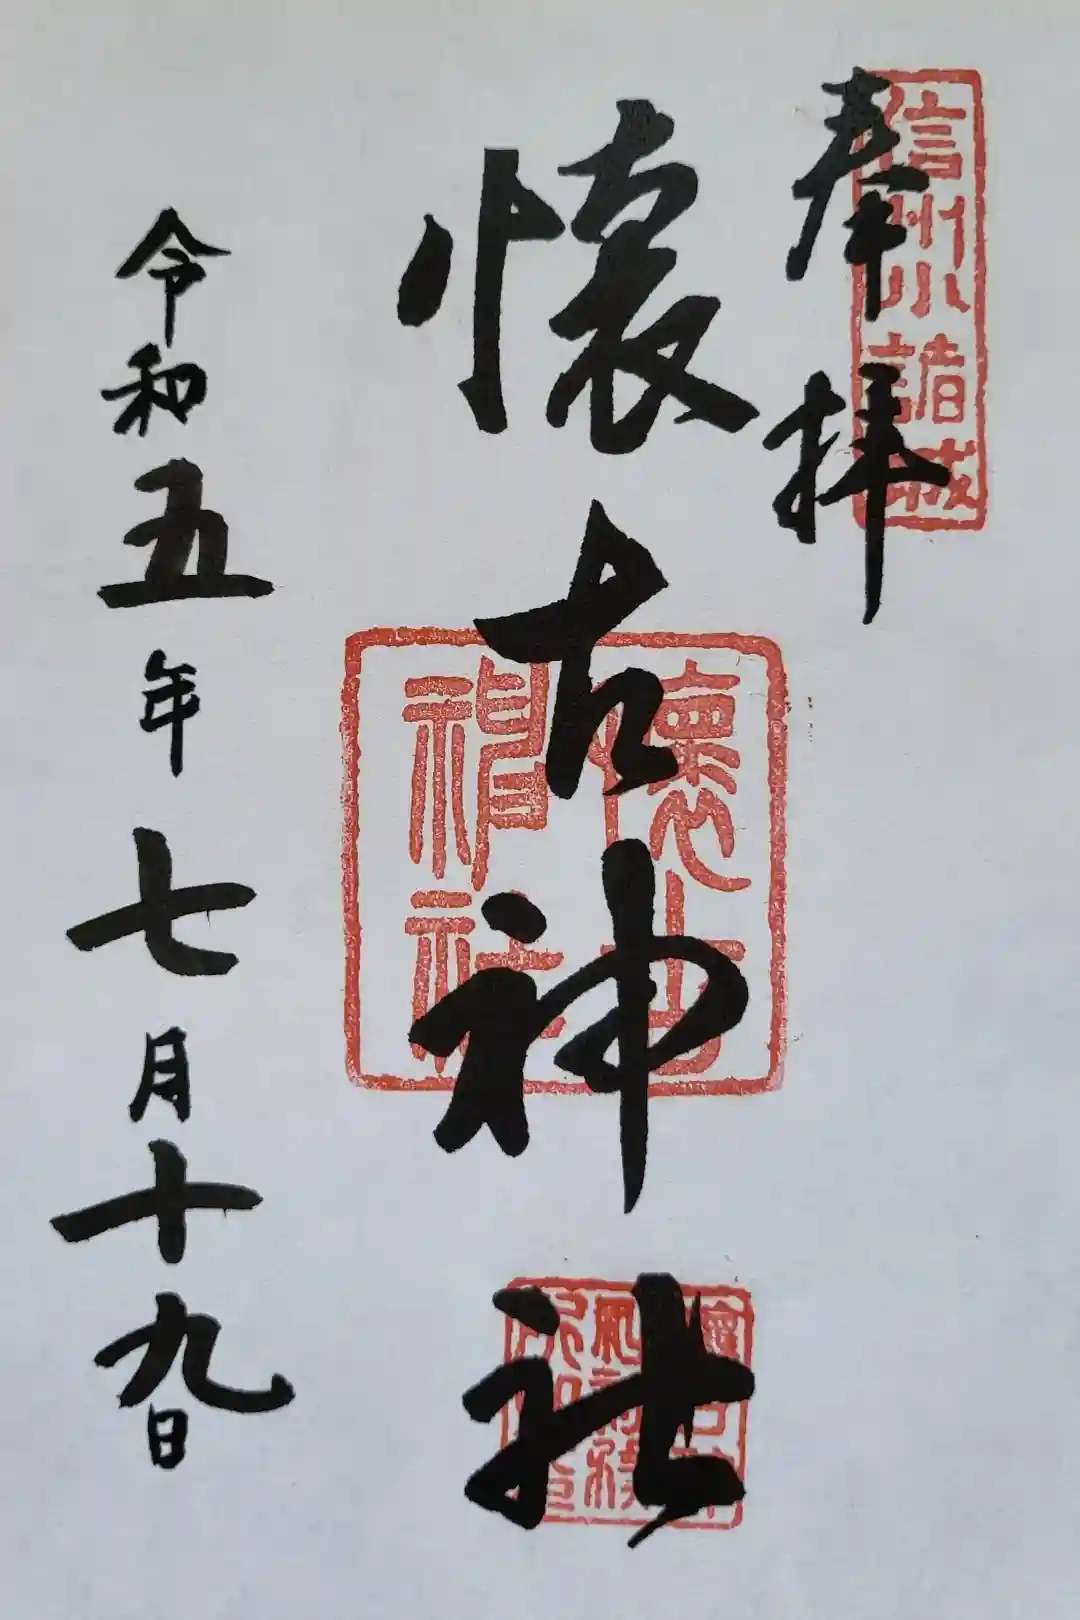 信州小諸城
奉拝
懐古神社
懐古神社
令和五年七月十九日